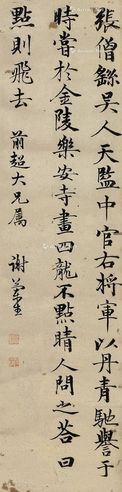 張僧繇吳人天監中官右將軍以丹青馳譽于
時嘗於金陵樂安寺畫四龍不點睛人問之荅曰
點則飛去
前超大兄屬 謝蘭生